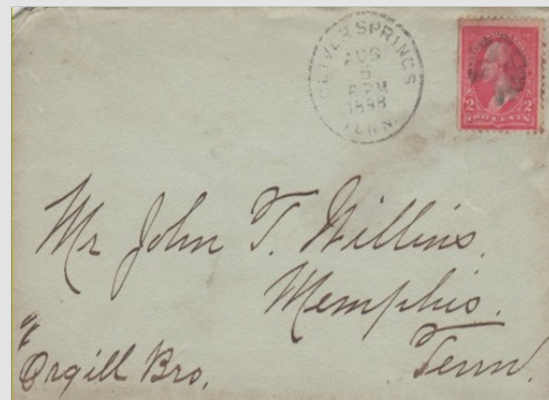 OLIVER SPRINGS
AUG
5
2 PM
1898
TENN.
2 2
TWO CENTS
Mr John T. Willins.
Memphis.
Tenn.
%
Orgill Bro.